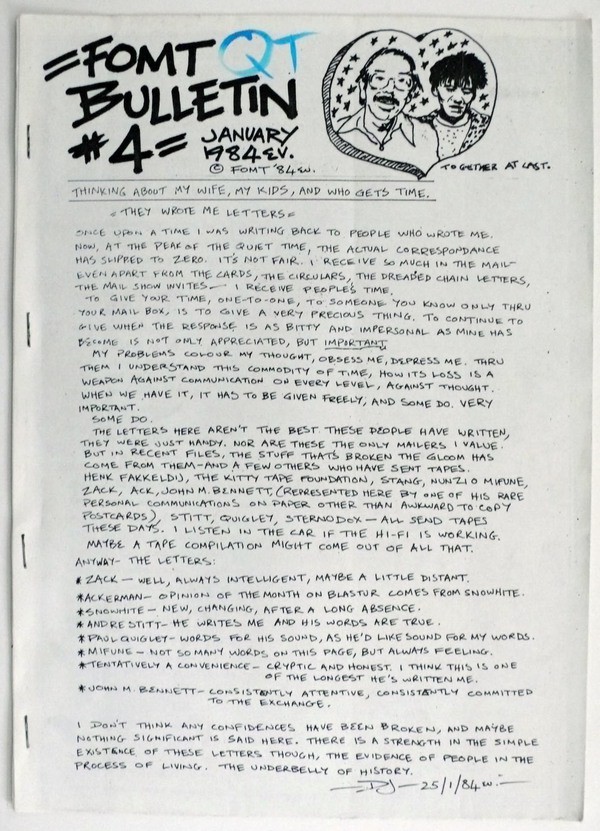 =FOMT QT
BULLETIN
#4= JANUARY
1984 EV.
© FOMT '84 EV.
TOGETHER AT LAST.
THINKING ABOUT MY WIFE, MY KIDS, AND WHO GETS TIME.
=THEY WROTE ME LETTERS=
ONCE UPON A TIME I WAS WRITING BACK TO PEOPLE WHO WROTE ME.
NOW, AT THE PEAK OF THE QUIET TIME, THE ACTUAL CORRESPONDANCE
HAS SLIPPED TO ZERO. IT'S NOT FAIR. I RECEIVE SO MUCH IN THE MAIL—
EVEN APART FROM THE CARDS, THE CIRCULARS, THE DREADED CHAIN LETTERS,
THE MAIL SHOW INVITES— I RECEIVE PEOPLE'S TIME.
TO GIVE YOUR TIME, ONE-TO-ONE, TO SOMEONE YOU KNOW ONLY THRU
YOUR MAIL BOX, IS TO GIVE A VERY PRECIOUS THING. TO CONTINUE TO
GIVE WHEN THE RESPONSE IS AS BITTY AND IMPERSONAL AS MINE HAS
BECOME IS NOT ONLY APPRECIATED, BUT IMPORTANT.
MY PROBLEMS COLOUR MY THOUGHT, OBSESS ME, DEPRESS ME. THRU
THEM I UNDERSTAND THIS COMMODITY OF TIME, HOW ITS LOSS IS A
WEAPON AGAINST COMMUNICATION ON EVERY LEVEL, AGAINST THOUGHT.
WHEN WE HAVE IT, IT HAS TO BE GIVEN FREELY, AND SOME DO. VERY
IMPORTANT.
SOME DO.
THE LETTERS HERE AREN'T THE BEST THESE PEOPLE HAVE WRITTEN,
THEY WERE JUST HANDY. NOR ARE THESE THE ONLY MAILERS I VALUE.
BUT IN RECENT FILES, THE STUFF THATS BROKEN THE GLOOM HAS
COME FROM THEM—AND A FEW OTHERS WHO HAVE SENT TAPES.
HENK FAKKELDIJ, THE KITTY TAPE FOUNDATION, STANG, NUNZIO MIFUNE,
ZACK, ACK, JOHN M. BENNETT, (REPRESENTED HERE BY ONE OF HIS RARE
PERSONAL COMMUNICATIONS ON PAPER OTHER THAN AWKWARD TO COPY
POSTCARDS), STITT, QUIGLEY, STERNODOX — ALL SEND TAPES
THESE DAYS. I LISTEN IN THE CAR IF THE HI-FI IS WORKING.
MAYBE A TAPE COMPILATION MIGHT COME OUT OF ALL THAT.
ANYWAY— THE LETTERS:
* ZACK — WELL, ALWAYS INTELLIGENT, MAYBE A LITTLE DISTANT.
*ACKERMAN— OPINION OF THE MONTH ON BLASTUR COMES FROM SNOWHITE.
*SNOWHITE— NEW, CHANGING, AFTER A LONG ABSENCE.
*ANDRE STITT— HE WRITES ME AND HIS WORDS ARE TRUE.
*PAUL QUIGLEY- WORDS FOR HIS SOUND, AS HE'D LIKE SOUND FOR MY WORDS.
*MIFUNE— NOT SO MANY WORDS ON THIS PAGE, BUT ALWAYS FEELING.
*TENTATIVELY A CONVENIENCE— CRYPTIC AND HONEST. I THINK THIS IS ONE
OF THE LONGEST HE'S WRITTEN ME.
*JOHN M. BENNETT— CONSISTANTLY ATTENTIVE, CONSISTANTLY COMMITTED
TO THE EXCHANGE.
I DON'T THINK ANY CONFIDENCES HAVE BEEN BROKEN, AND MAYBE
NOTHING SIGNIFICANT IS SAID HERE. THERE IS A STRENGTH IN THE SIMPLE
EXISTENCE OF THESE LETTERS THOUGH, THE EVIDENCE OF PEOPLE IN THE
PROCESS OF LIVING. THE UNDERBELLY OF HISTORY.
—DJ— 25/1/84 EV.—